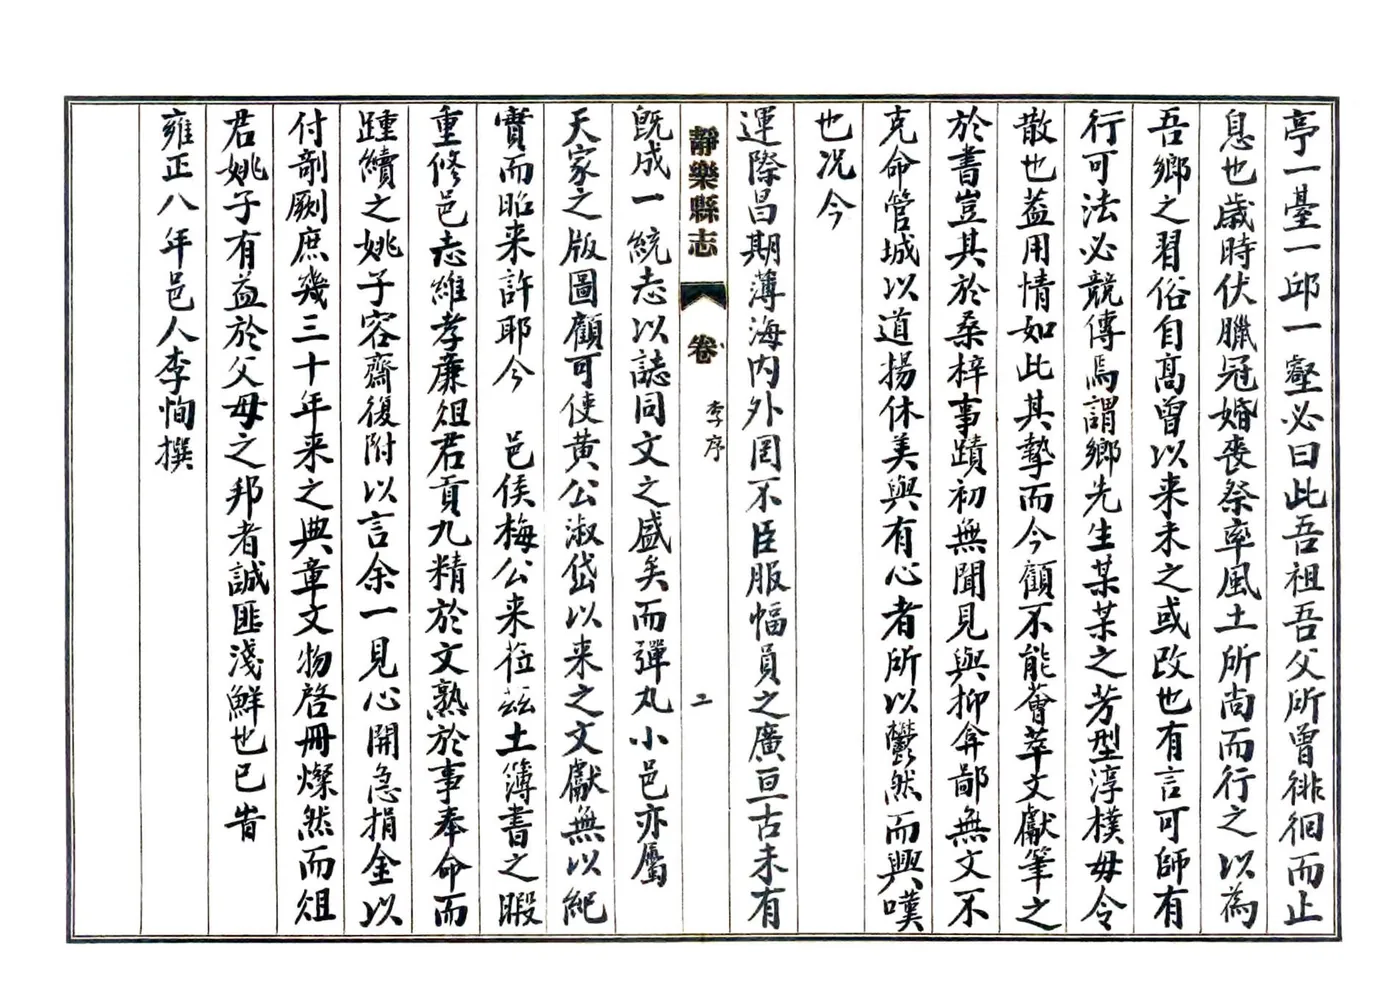 亭一臺一邱一壑必曰此吾祖吾父所曾徘徊而止
息也歲時伏臘冠婚喪祭率風土所尚而行之以為
吾鄉之習俗自高曾以来未之或改也有言可師有
行可法必競傳焉謂鄉先生某某之芳型淳樸毋令
散也葢用情如此其摯而今顧不能薈萃文獻筆之
於書豈其於桑梓事蹟初無聞見與抑弇鄙無文不
克命管城以道揚休美與有心者所以鬱然而興嘆
也况今
運際昌期薄海内外罔不臣服幅員之廣亘古未有
靜樂縣志 卷 李序 二
既成一統志以誌同文之盛矣而彈丸小邑亦屬
天家之版圖顧可使黄公淑岱以来之文獻無以紀
實而昭来許耶今 邑侯梅公来莅兹土簿書之暇
重修邑志維孝廉俎君貢九精於文熟於事奉命而
踵續之姚子容齋復附以言余一見心開急捐金以
付剞劂庶幾三十年来之典章文物啓冊燦然而俎
君姚子有益於父母之邦者誠匪淺鮮也已旹
雍正八年邑人李恂撰